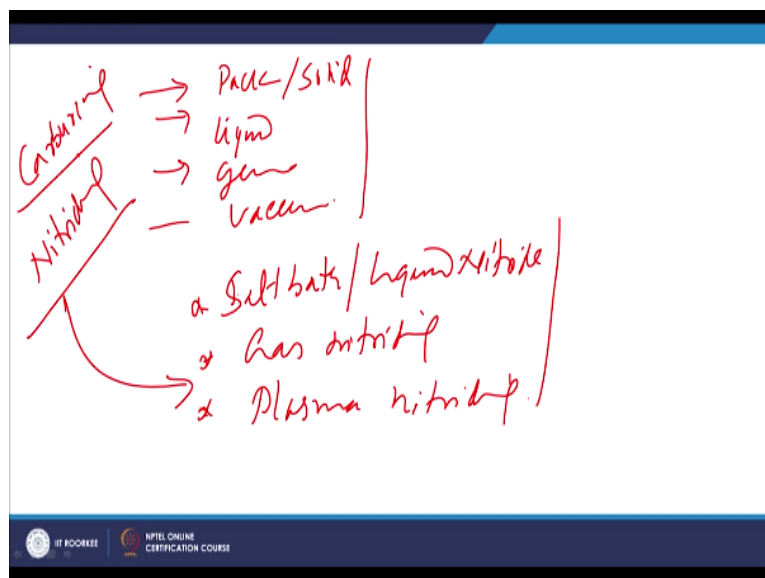 Carburizing → Pack/Solid
→ liquid
→ gas
— Vaccum.
Nitriding
* Salt bath/liquid Nitride
* Gas nitriding
* Plasma nitriding.
IIT ROORKEE
NPTEL ONLINE
CERTIFICATION COURSE